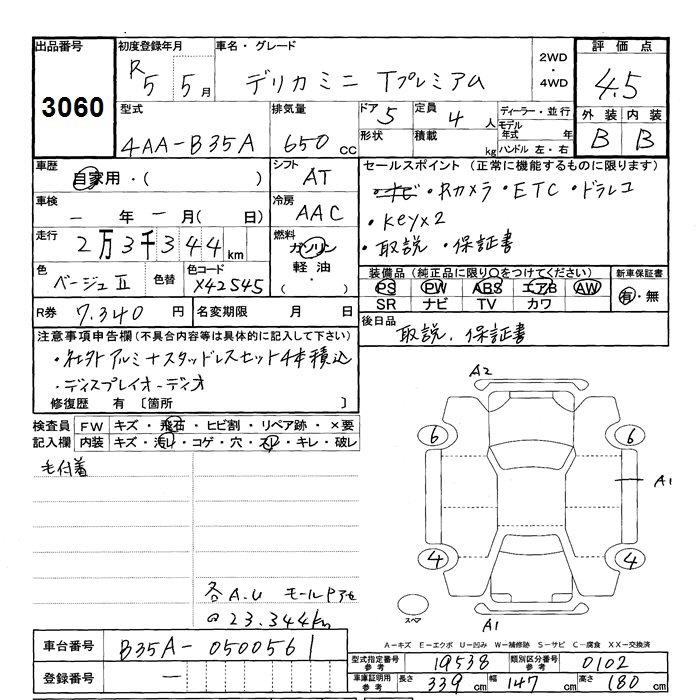 出品番号 初度登録年月 車名・グレード 2WD・4WD 評価点
3060 R5 5月 デリカミニ Tプレミアム 4.5
型式 排気量 ドア 5 定員 4人 ディーラー・並行 外装 内装
4AA-B35A 650cc 形状 積載 kg モデル年式 年 B B
ハンドル 左・右
車歴 自家用・( ) シフト AT セールスポイント(正常に機能するものに限ります)
車検 ー年ー月( 日) 冷房 AAC ナビ・Rカメラ・ETC・ドラレコ
・Keyx2
走行 2万3千344km 燃料 ガソリン・軽油・( ) ・取説・保証書
色 ベージュII 色替 色コード X42S45 装備品(純正品に限り○をつけてください) 新車保証書
PS PW ABS エアB AW 有・無
SR ナビ TV カワ
R券 7.340円 名変期限 月 日 後日品 取説.保証書
注意事項申告欄(不具合内容等は具体的に記入して下さい)
・社外アルミ+スタッドレスセット4本積込
・ディスプレイオーディオ
修復歴 有〔箇所 〕
検査員記入欄 FW キズ・飛石・ヒビ割・リペア跡・×要
内装 キズ・汚れ・コゲ・穴・スレ・キレ・破レ
毛付着
A2
6 6
A1
4 4
スペア A1
各A.U モール
@23.344km
A-キズ E-エクボ U-凹み W-補修跡 S-サビ C-腐食 XX-交換済
車台番号 B35A-0500561
登録番号 ー
型式指定番号参考 19538 類別区分番号参考 0102
車庫証明用参考 長さ 339cm 幅 147cm 高さ 180cm